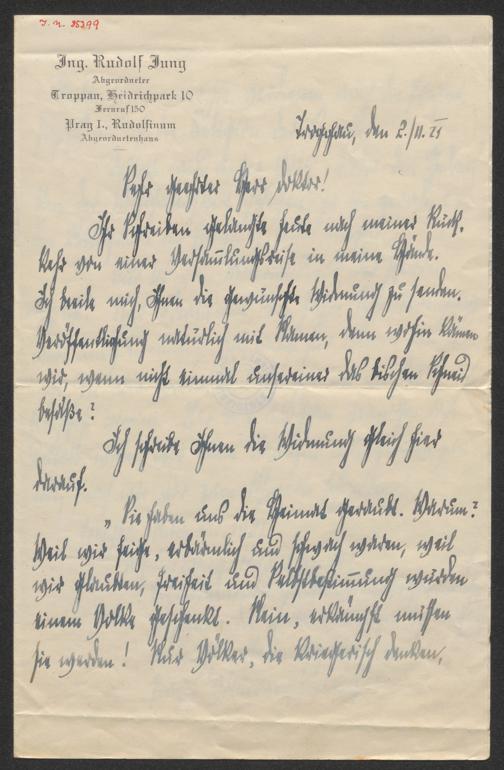 J. N. 25299
Ing. Rudolf Jung
Abgeordneter
Troppau, Heidrichpark 10
Fernruf 150
Prag I., Rudolfinum
Abgeordnetenhaus
den 2./11. 25
Sehr geehrter Herr Doktor!
Ihr Schreiben gelangte heute nach meiner Rück-
kehr von einer Versammlungsreise in meine Hände.
Ich beeile mich, Ihnen die gewünschte Widmung zu senden.
Veröffentlichung natürlich mit Namen, denn wohin kämen
wir, wenn nicht einmal unsereiner das bischen Schneid
besäße?
Ich schreibe Ihnen die Widmung gleich hier
darauf.
„Sie haben uns die Heimat geraubt. Warum?
Weil wir feige, erbärmlich und schwach waren, weil
wir glaubten, Freiheit und Selbstbestimmung würden
einem Volke geschenkt. Nein, erkämpft müssen
sie werden! Nur Völker, die kriegerisch denken,